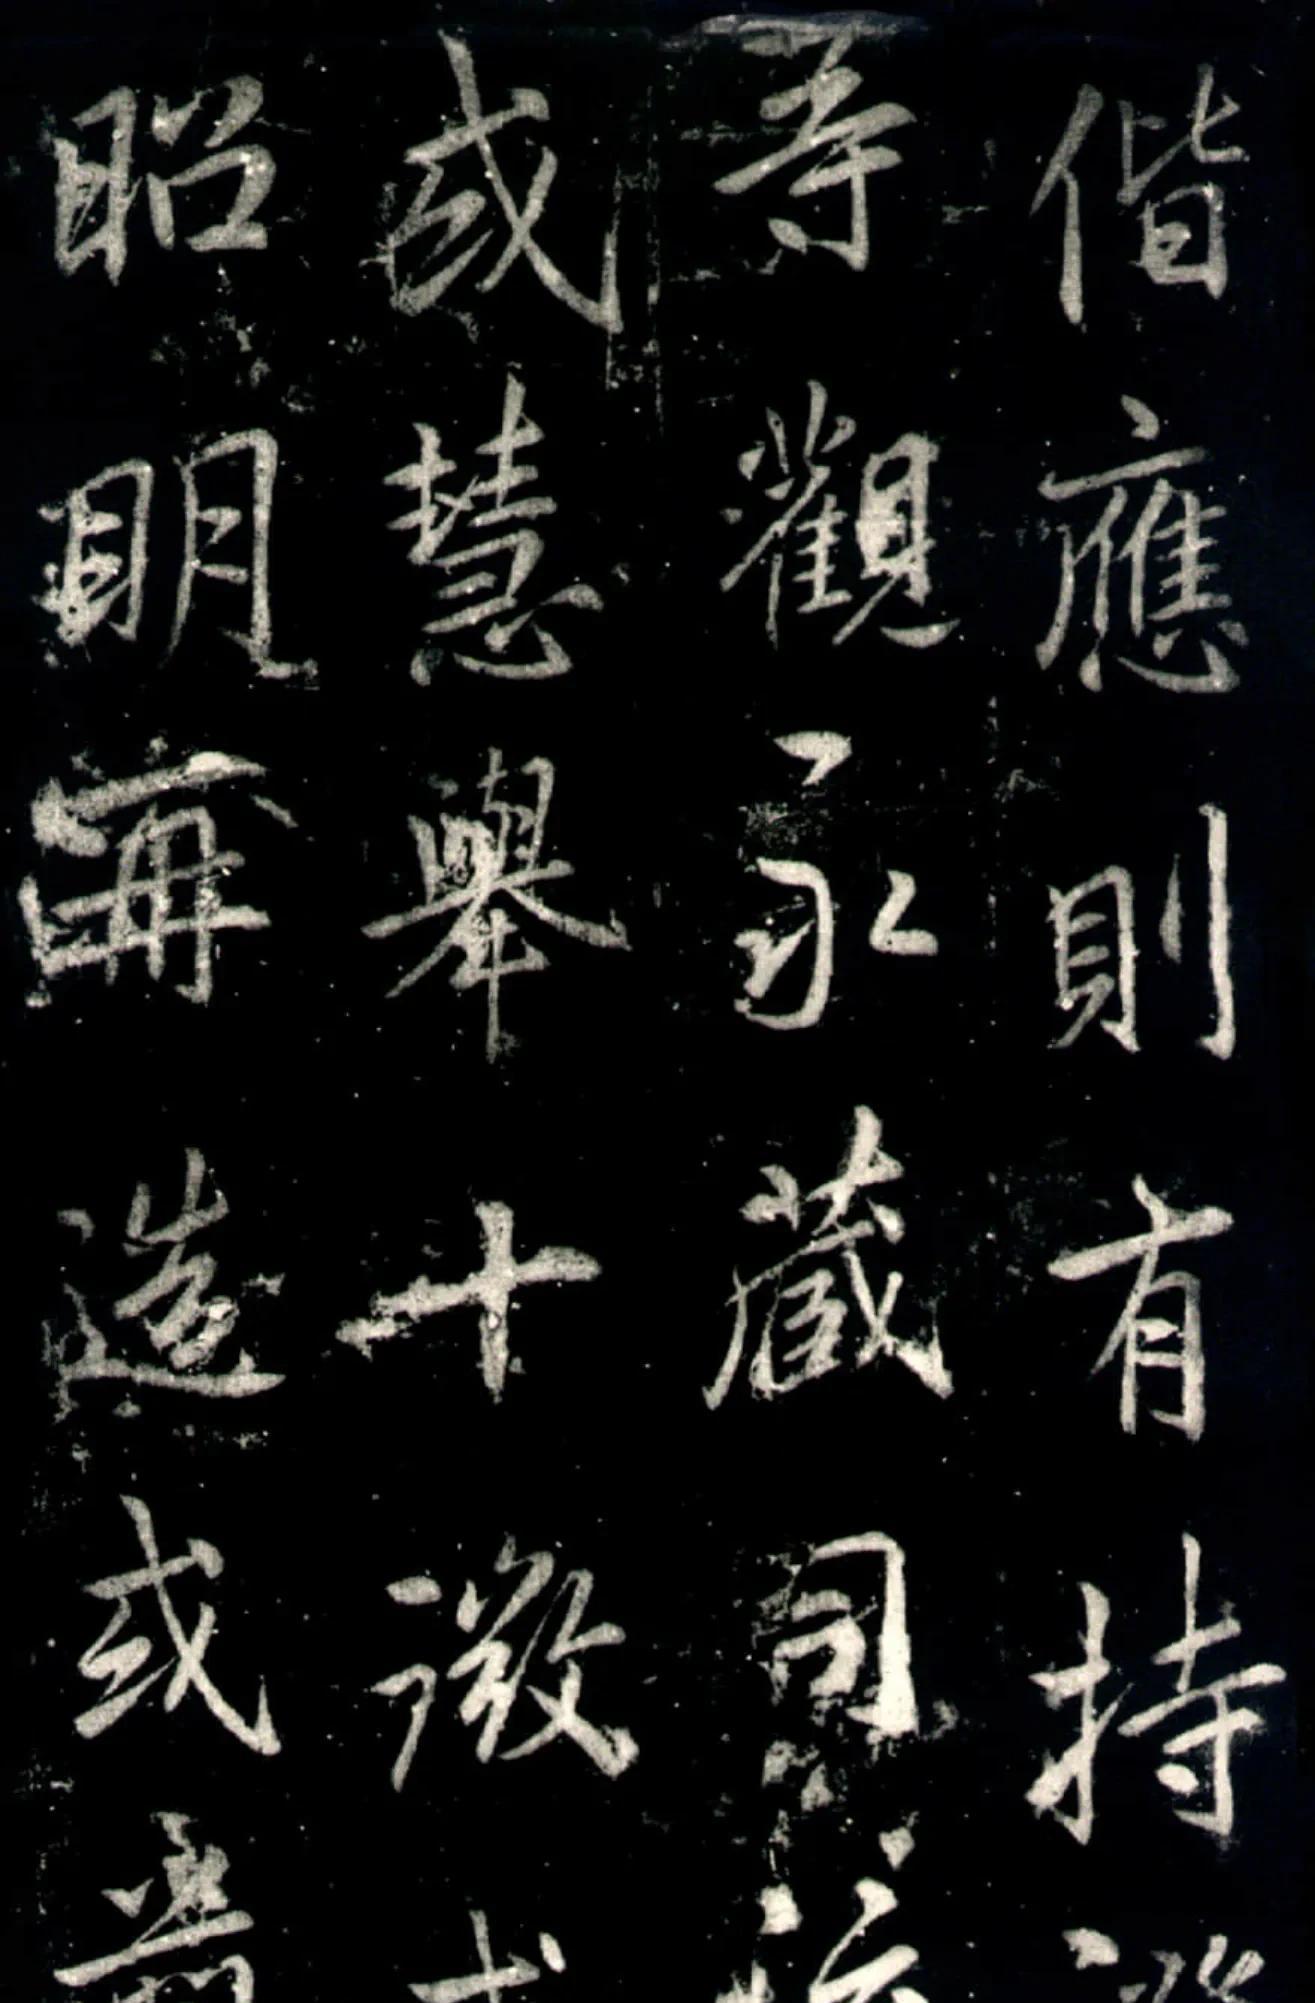 偕應則有持
等觀永藏司
或慧舉十徵
昭明再造或